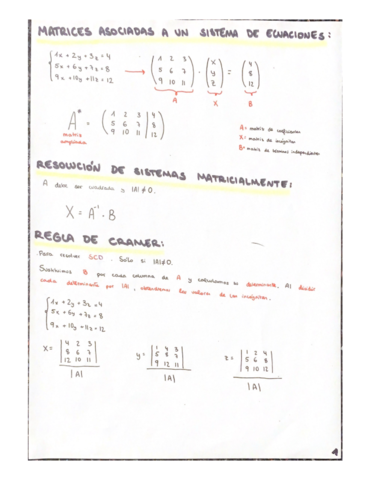 MATRICES ASOCIADAS A UN SISTEMA DE ECUACIONES:
1x + 2y + 3z = 4
5x + 6y + 7z = 8
9x + 10y + 11z = 12
( 1 2 3 ) ( x ) = ( 4 )
( 5 6 7 ) · ( y ) = ( 8 )
( 9 10 11 ) ( z ) ( 12 )
A X B
A* = ( 1 2 3 | 4 )
( 5 6 7 | 8 )
( 9 10 11 | 12 )
matriz ampliada
A = matriz de coeficientes
X = matriz de incógnitas
B = matriz de términos independientes
RESOLUCIÓN DE SISTEMAS MATRICIALMENTE:
A debe ser cuadrada y |A| ≠ 0.
X = A⁻¹ · B
REGLA DE CRAMER:
Para resolver SCD. Solo si |A| ≠ 0.
Sustituimos B por cada columna de A y calculamos su determinante. Al dividir
cada determinante por |A|, obtendremos los valores de las incógnitas.
1x + 2y + 3z = 4
5x + 6y + 7z = 8
9x + 10y + 11z = 12
x = | 4 2 3 | y = | 1 4 3 | z = | 1 2 4 |
| 8 6 7 | | 5 8 7 | | 5 6 8 |
| 12 10 11 | | 9 12 11 | | 9 10 12 |
|A| |A| |A|
4